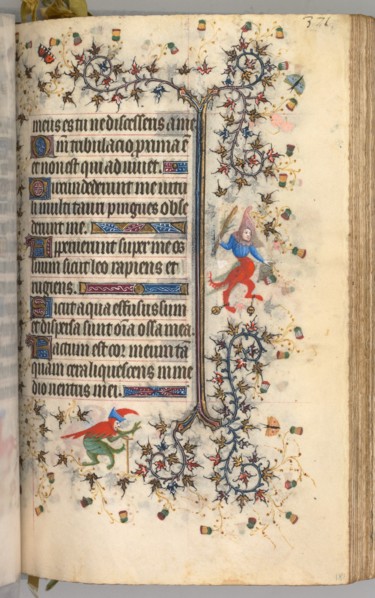 376.
meus es tu ne discesseris a me
Qm tribulacio proxima ē
et non est qui adiuvet.
Circumdederunt me vitu
li multi tauri pingues obse
derunt me.
Aperuerunt super me os
suum sicut leo rapiens et
rugiens.
Sicut aqua effusus sum
et dispersa sunt oīa ossa mea.
Factum est cor meum tā
quam cera liquescens in me
dio ventris mei.